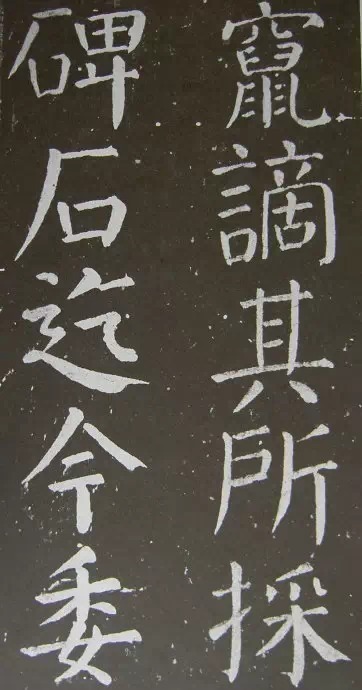 竄謫其所採
碑石迄今委